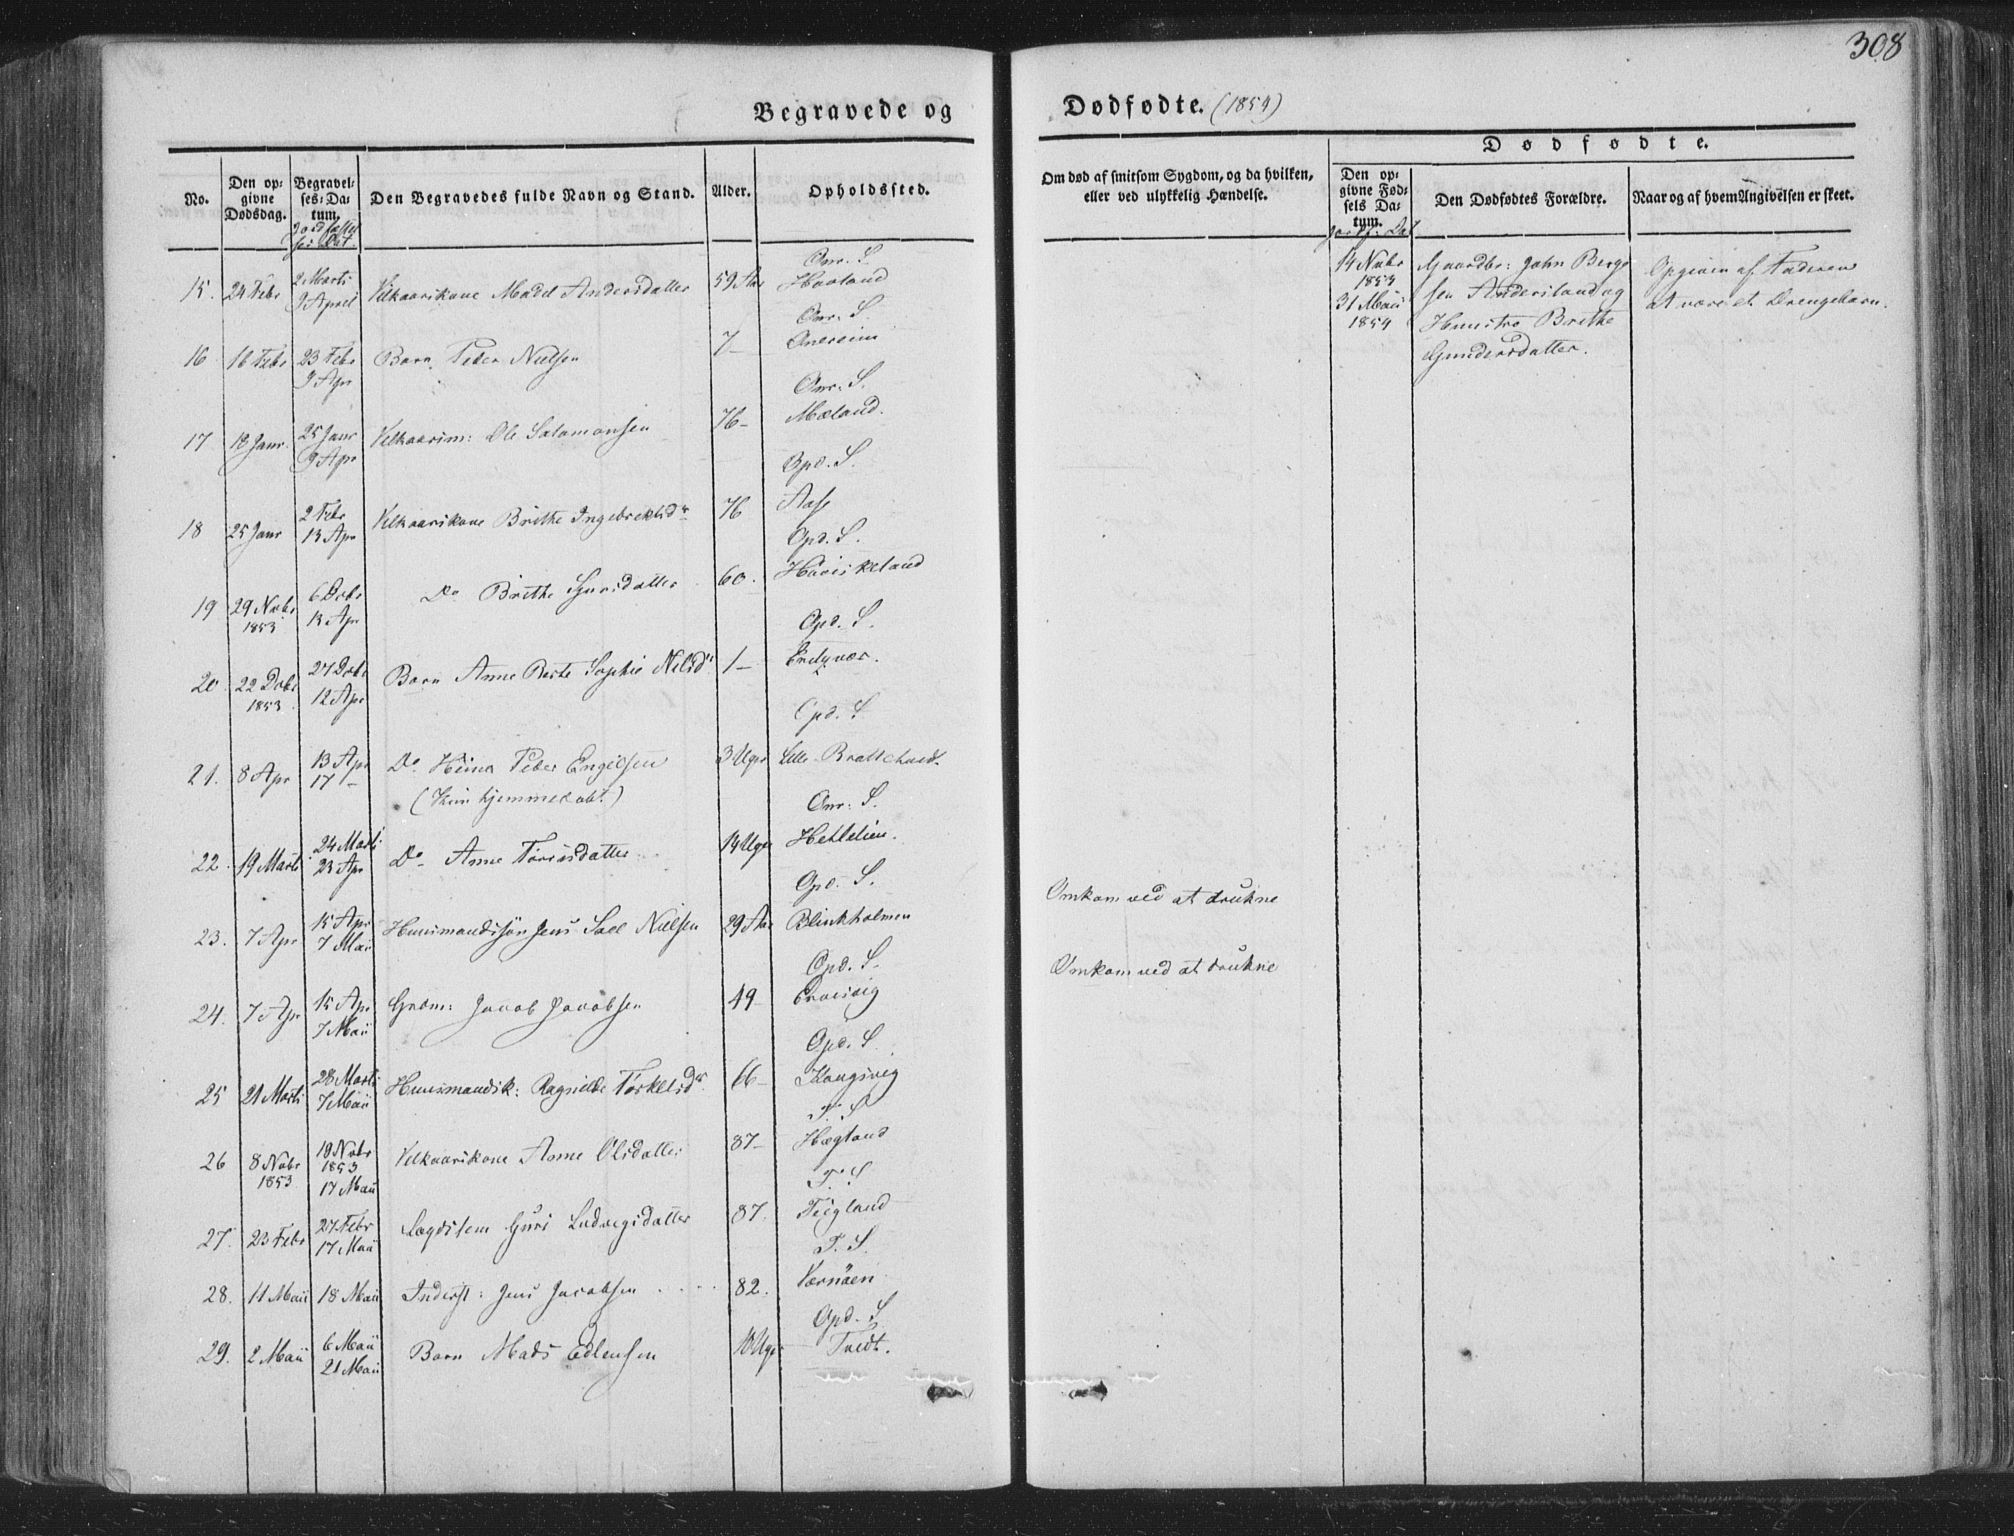 308
Begravede og Dødfødte. (1854)
Dødfødte.
No.
Den opgivne Dødsdag.
Begravelses-Datum.
Den Begravedes fulde Navn og Stand.
Alder.
Opholdssted.
Om død af smitsom Sygdom, og da hvilken, eller ved ulykkelig Hændelse.
Den opgivne Fødsels Datum.
Den Dødfødtes Forældre.
Naar og af hvem Angivelsen er skeet.
15. 24 Febr 2 Marti 9 April Vilkaarskone Madel Andersdatter 59 Aar Haaland
16 16 Febr 23 Febr 9 Apr Barn Peder Nielsen 7 –
17 18 Janr. 25 Janr 9 Apr Vilkaarsm: Ole Salamonsen 76 – Mæland.
Opd. S.
18 25 Janr 2 Febr 13 Apr Vilkaarskone Brithe Ingebrektsdr 76 Aase
Opd. S.
19 29 Nvbr 1853 6 Dcbr 13 Apr Do Brithe Sjursdatter 60. Haviskeland
Opd. S.
20. 22 Dcbr 1853 27 Dcbr 12 Apr Barn Anne Berte Sophie Nilsdr 1 –
Opd. S.
21. 8 Apr 13 Apr 17 – Do Peder 3 Uger Lille
(Kun hjemmedøbt.)
22. 19 Marti 24 Marti 23 Apr Do Anne 14 Uger Hetlelien.
Opd. S.
23. 7 Apr 15 Apr 7 Maii Huusmandssøn Jens Nielsen 29 Aar Blinkholmen Omkom ved at drukne
Opd. S.
24. 7 Apr 15 Apr 7 Maii Grdm: Jacob Jacobsen 49 – Omkom ved at drukne
Opd. S.
25 21 Marti 28 Marti 7 Maii Huusmandsk: Ragnilde Torkelsdr 66 – Kongsvig
T. S.
26 8 Nvbr 1853 19 Nvbr 1853 17 Maii Vilkaarskone Anne Olsdatter 87 – Hægland
T. S.
27. 23 Febr 27 Febr 17 Maii Lægdslem Guri Ludvigsdatter 87. Teigland
T. S.
28. 11 Maii 18 Maii Inderst: Jens Jacobsen 82.Værnöen
Opd. S.
29. 2 Maii 6 Maii 21 Maii Barn Mads 10 Uger Tvedt.
14 Nvbr 1853
31 Maii 1854
Gaardbr: John Bergesen Andersland og
Huustro Brithe
Gundersdatter.
Opgiven af Faderen
at være et Drengebarn.